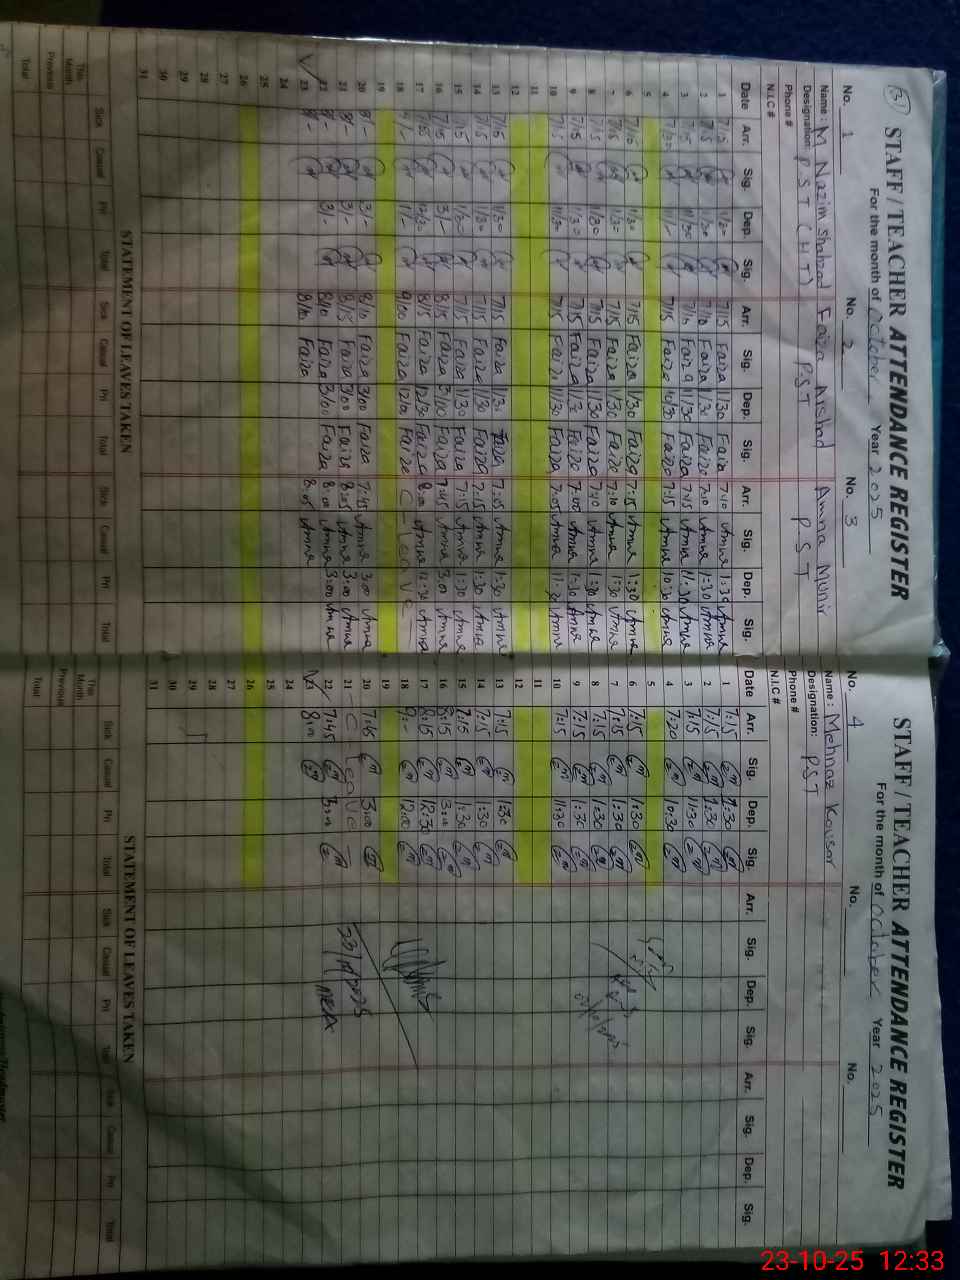 (3)
STAFF / TEACHER ATTENDANCE REGISTER
For the month of October Year 2025
No. 1 No. 2 No. 3
Name: M Nazim Shahzad Faiza Arshad Amna Munir
Designation: PST (HT) PST PST
Phone #
N.I.C #
Date Arr. Sig. Dep. Sig. Arr. Sig. Dep. Sig. Arr. Sig. Dep. Sig.
1 7/15 7/15 Faiza 1/30 Faiza 7:10 Amna 1:30 Amna
2 7/15 1/30 7/10 Faiza 1/30 Faiza 7:10 Amna 1:30 Amna
3 7/15 11/30 7/10 Faiza 11/30 Faiza 7:15 Amna 11:30 Amna
4 7/15 Faiza 10/30 Faiza 7:15 Amna 10:30 Amna
5
6 7/15 1/30 7/15 Faiza 1/30 Faiza 7:15 Amna 1:30 Amna
7 7/15 1/30 7/15 Faiza 1/30 Faiza 7:10 Amna 1:30 Amna
8 7/15 1/30 7/15 Faiza 1/30 Faiza 7:10 Amna 1:30 Amna
9 7/15 1/30 7/15 Faiza 1/30 Faiza 7:00 Amna 1:30 Amna
10 7/15 11/30 7/15 Faiza 11/30 Faiza 7:05 Amna 11:30 Amna
11
12
13 7/15 1/30 7/15 Faiza 1/30 Faiza 7:05 Amna 1:30 Amna
14 7/15 1/30 7/15 Faiza 1/30 Faiza 7:15 Amna 1:30 Amna
15 7/15 1/30 7/15 Faiza 1/30 Faiza 7:15 Amna 1:30 Amna
16 3/- 8/15 Faiza 3/00 Faiza 7:45 Amna 3:00 Amna
17 12/30 8/15 Faiza 12/30 Faiza 8:00 Amna 12:30 Amna
18 9/- 1/- 9/00 Faiza 12/0 Faiza C-leave
19
20 8/- 3/- 8/10 Faiza 3/00 Faiza 7:45 Amna 3:00 Amna
21 8/- 3/- 8/15 Faiza 3/00 Faiza 8:05 Amna 3:00 Amna
22 8/- 3/- 8/10 Faiza 3/00 Faiza 8:00 Amna 3:00 Amna
23 8/- 8/10 Faiza 8:05 Amna
24
25
26
27
28
29
30
31
STATEMENT OF LEAVES TAKEN
Sick Casual Pri Total Sick Casual Pri Total Sick Casual Pri Total
This Month
Previous
Total
STAFF / TEACHER ATTENDANCE REGISTER
For the month of October Year 2025
No. 4 No. No.
Name: Mehnaz Kousar
Designation: PST
Phone #
N.I.C #
Date Arr. Sig. Dep. Sig. Arr. Sig. Dep. Sig. Arr. Sig. Dep. Sig.
1 7:15 1:30
2 7:15 1:30
3 7:15 11:30
4 7:20 10:30
5
6 7:15 1:30
7 7:15 1:30
8 7:15 1:30
9 7:15 1:30
10 7:15 11:30
11
12
13 7:15 1:30
14 7:15 1:30
15 7:15 1:30
16 8:15 3:00
17 8:15 12:30
18 9:- 12:00
19
20 7:45 3:00
21 C-leave
22 7:45 3:00
23 8:00
23/10/2025
MEA
24
25
26
27
28
29
30
31
STATEMENT OF LEAVES TAKEN
Sick Casual Pri Total Sick Casual Pri Total Sick Casual Pri Total
This Month
Previous
Total
23-10-25 12:33